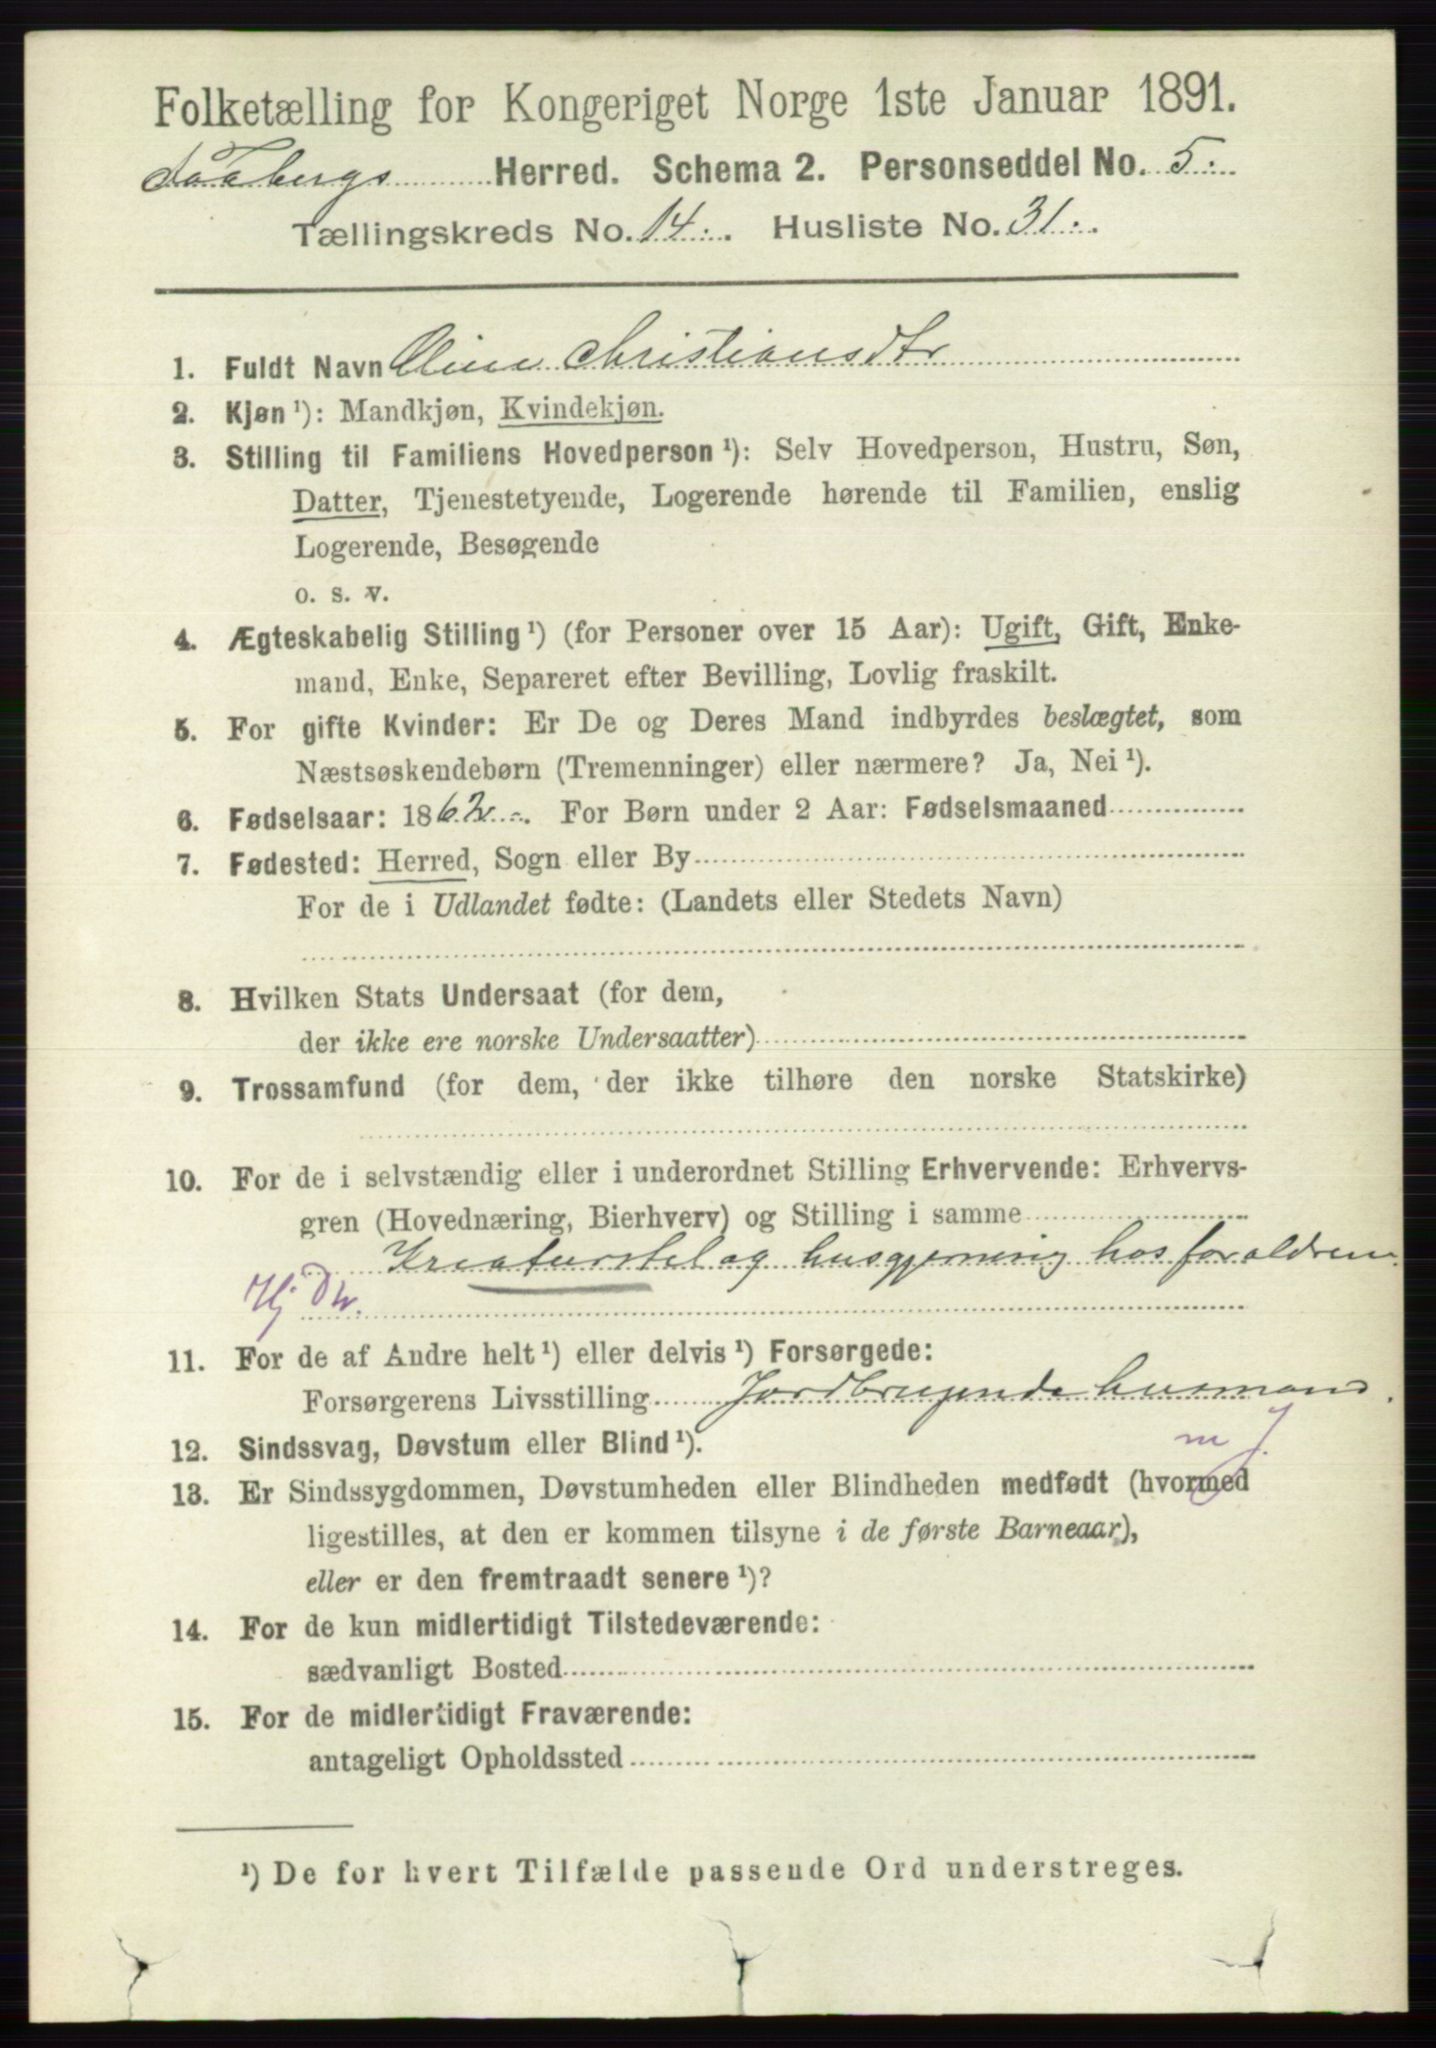 Folketælling for Kongeriget Norge 1ste Januar 1891.
Faabergs Herred. Schema 2. Personseddel No. 5.
Tællingskreds No. 14. Husliste No. 31.
1. Fuldt Navn Oline Christiansdtr
2. Kjøn ¹): Mandkjøn, Kvindekjøn.
3. Stilling til Familiens Hovedperson ¹): Selv Hovedperson, Hustru, Søn,
Datter, Tjenestetyende, Logerende hørende til Familien, enslig
Logerende, Besøgende
o. s. v.
4. Ægteskabelig Stilling ¹) (for Personer over 15 Aar): Ugift, Gift, Enke-
mand, Enke, Separeret efter Bevilling, Lovlig fraskilt.
5. For gifte Kvinder: Er De og Deres Mand indbyrdes beslægtet, som
Næstsøskendebørn (Tremenninger) eller nærmere? Ja, Nei ¹).
6. Fødselsaar: 1862. For Børn under 2 Aar: Fødselsmaaned
7. Fødested: Herred, Sogn eller By
For de i Udlandet fødte: (Landets eller Stedets Navn)
8. Hvilken Stats Undersaat (for dem,
der ikke ere norske Undersaatter)
9. Trossamfund (for dem, der ikke tilhøre den norske Statskirke)
10. For de i selvstændig eller i underordnet Stilling Erhvervende: Erhvervs-
gren (Hovednæring, Bierhverv) og Stilling i samme
Kreaturstel og husgjerning hos foraldrene.
Hj
11. For de af Andre helt ¹) eller delvis ¹) Forsørgede:
Forsørgerens Livsstilling Jordbrugende husmand.
m J.
12. Sindssvag, Døvstum eller Blind ¹).
13. Er Sindssygdommen, Døvstumheden eller Blindheden medfødt (hvormed
ligestilles, at den er kommen tilsyne i de første Barneaar),
eller er den fremtraadt senere ¹)?
14. For de kun midlertidigt Tilstedeværende:
sædvanligt Bosted
15. For de midlertidigt Fraværende:
antageligt Opholdssted
¹) De for hvert Tilfælde passende Ord understreges.